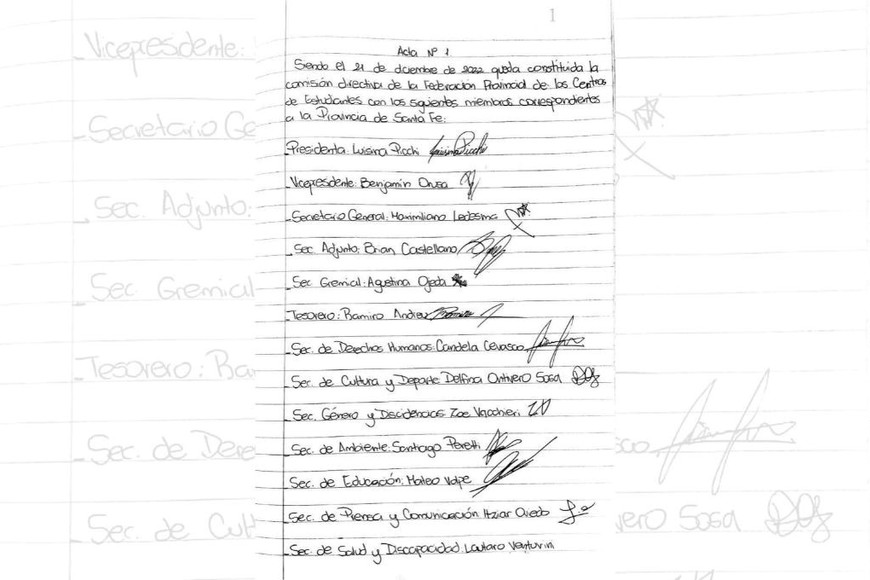 1
Acta Nº 1
Siendo el 21 de diciembre de 2022 queda constituida la
comisión directiva de la Federación Provincial de los Centros
de Estudiantes con los siguientes miembros correspondientes
a la Provincia de Santa Fe:
_Presidenta: Luisina Picchi
_Vicepresidente: Benjamin Orusa
_Secretario General: Maximiliano Ledesma
_Sec. Adjunto: Brian Castellano
_Sec Gremial: Agustina Ojeda
_Tesorero: Ramiro Andreu
_Sec. de Derechos Humanos: Candela Cevasco
_Sec. de Cultura y Deporte Delfina Ontivero Sosa
_Sec. Género y Disidencias Zoe
_Sec. de Ambiente: Santiago Peretti
_Sec. de Educación: Mateo Volpe
_Sec. de Prensa y Comunicación Itziar Oviedo
_Sec. de Salud y Discapacidad Lautaro Venturini